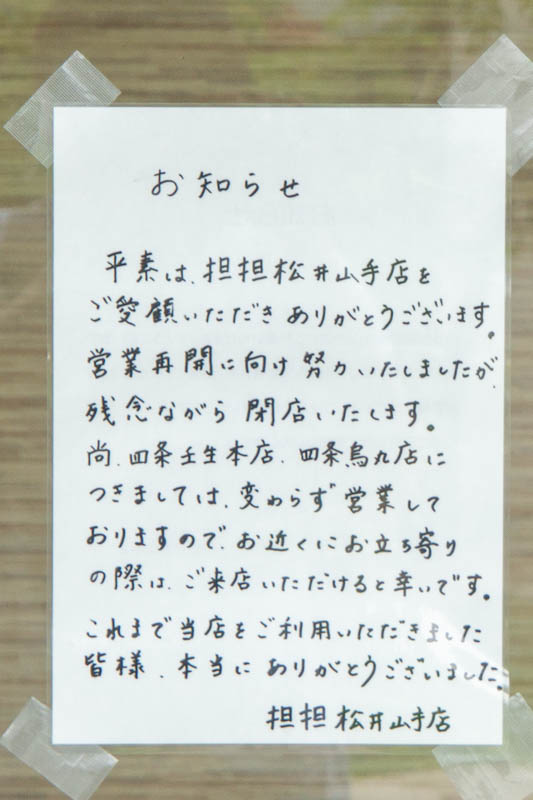 お知らせ
平素は、担担松井山手店を
ご愛顧いただきありがとうございます。
営業再開に向け努力いたしましたが、
残念ながら閉店いたします。
尚、四条壬生本店、四条烏丸店に
つきましては、変わらず営業して
おりますので、お近くにお立ち寄り
の際は、ご来店いただけると幸いです。
これまで当店をご利用いただきました
皆様、本当にありがとうございました。
担担松井山手店